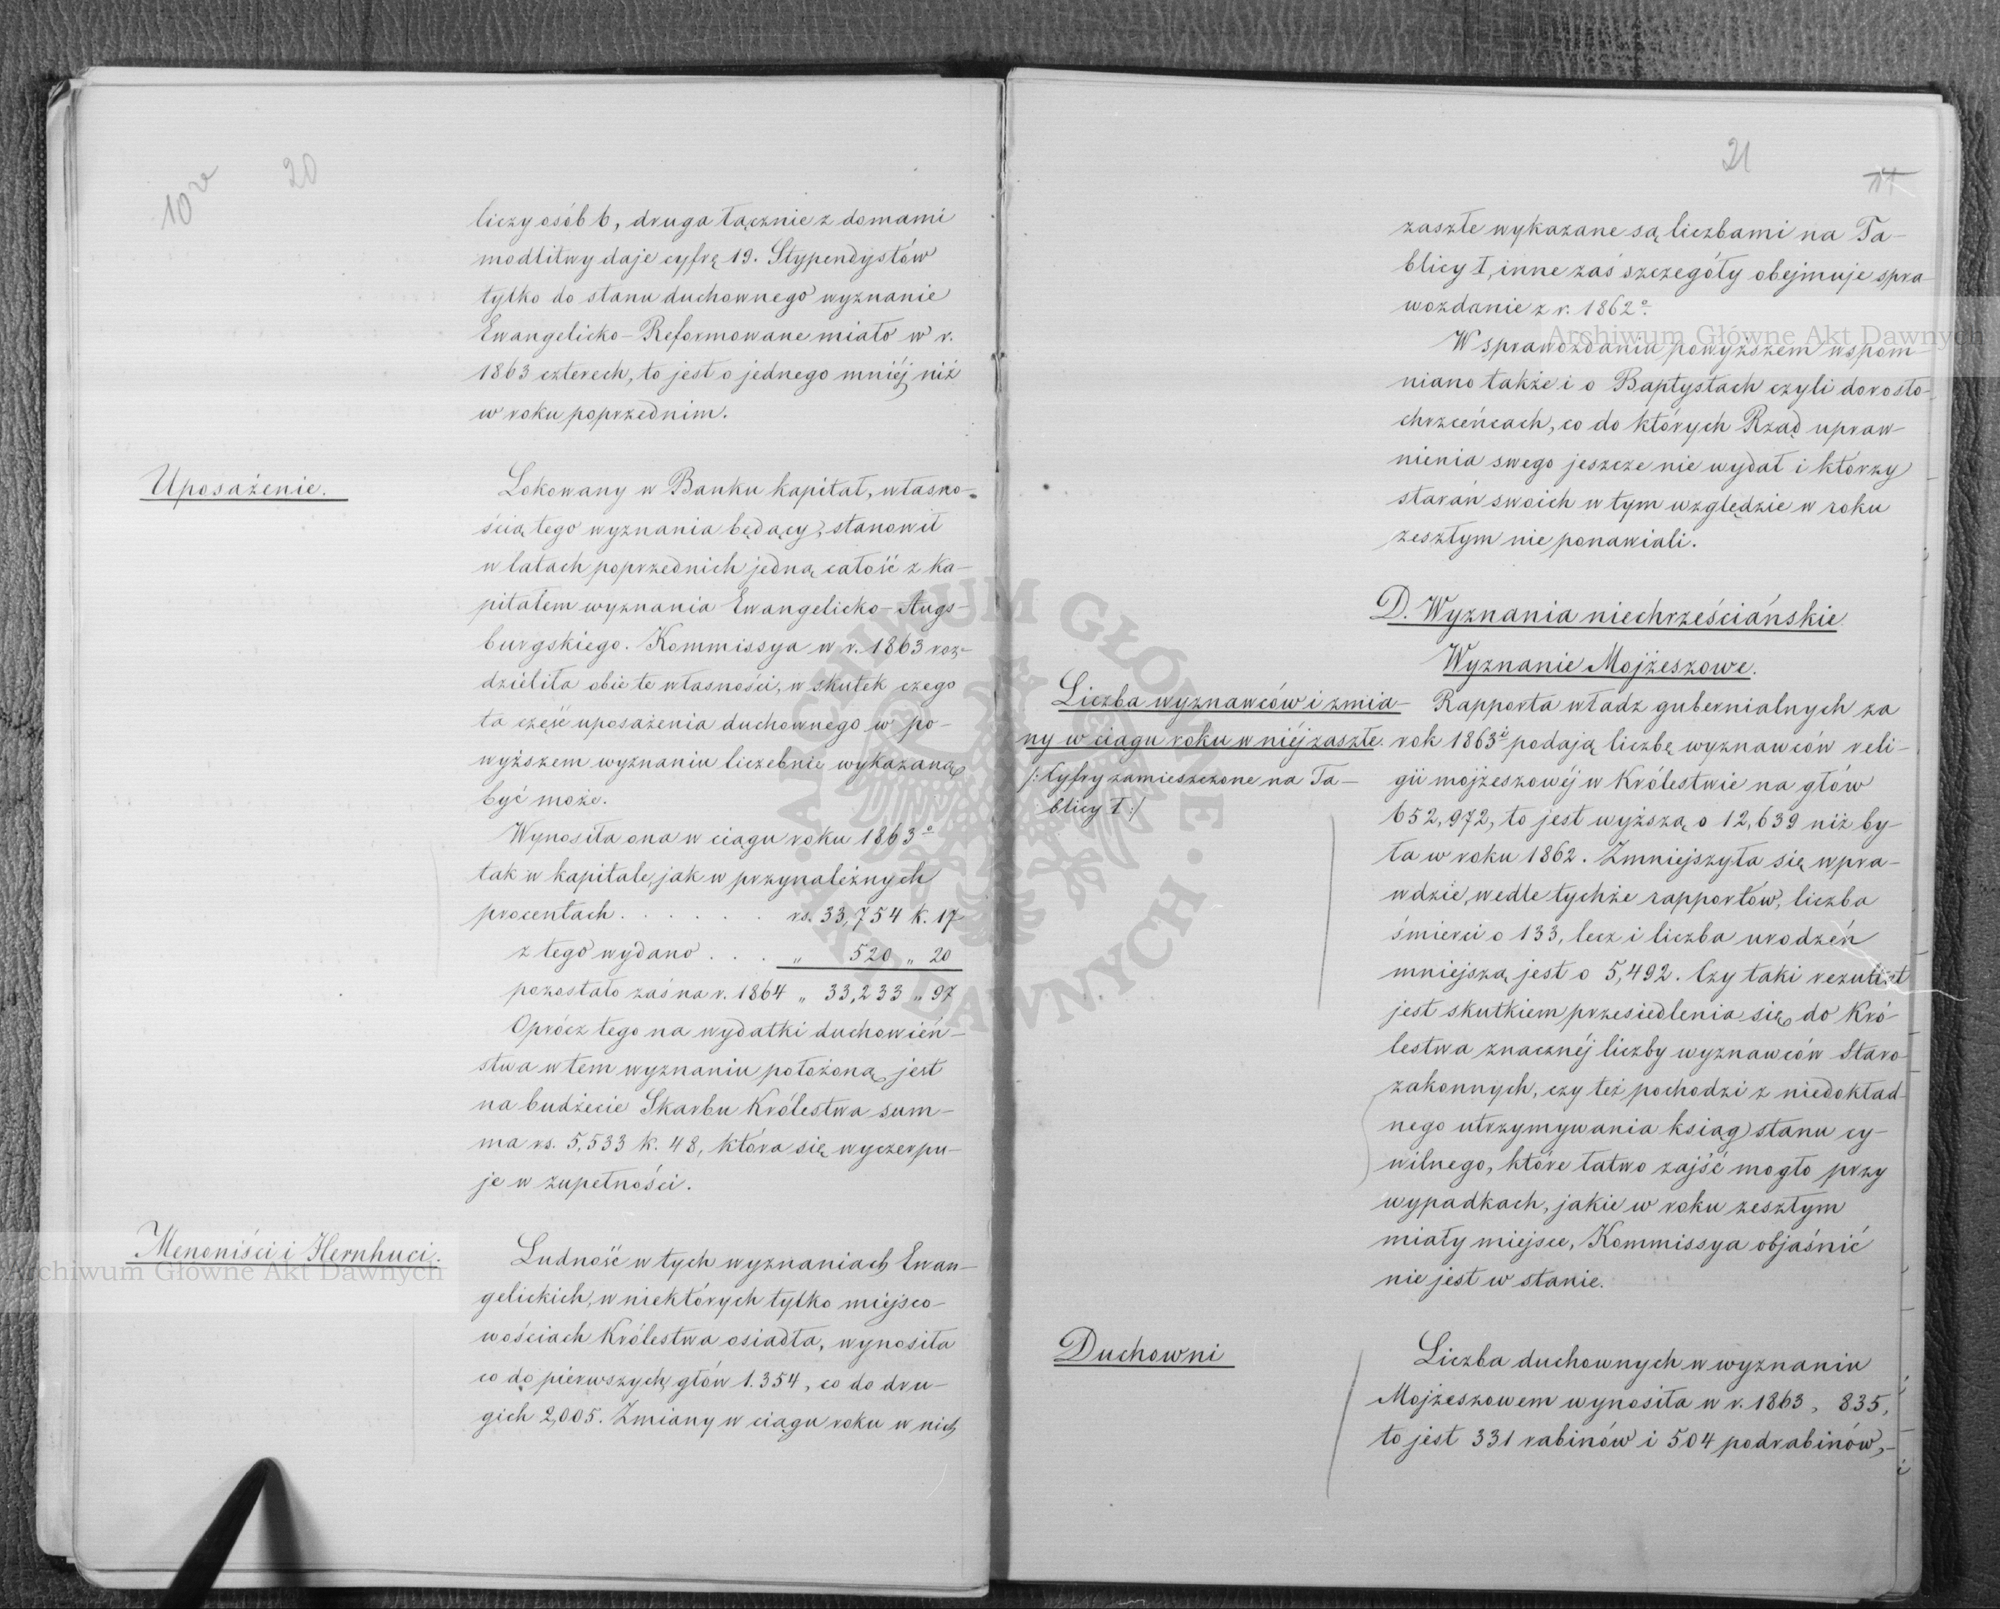 10v 20
liczy osób 6, druga łącznie z domami
modlitwy daje cyfrę 19. Stypendystów
tylko do stanu duchownego wyznanie
Ewangelicko-Reformowane miało w r.
1863 czterech, to jest o jednego mniéj niż
w roku poprzednim.
Uposażenie.
Lokowany w Banku kapitał, własno-
ścią tego wyznania będący, stanowił
w latach poprzednich jedną całość z ka-
pitałem wyznania Ewangelicko-Augs-
burgskiego. Kommissya w r. 1863 roz-
dzieliła obie te własności, w skutek czego
ta część uposażenia duchownego w po-
wyższem wyznaniu liczebnie wykazaną
być może.
Wynosiła ona w ciągu roku 1863º
tak w kapitale, jak w przynależnych
procentach . . . . . . rs. 33,754 k. 17
z tego wydano . . . „ 520 „ 20
pozostało zaś na r. 1864 „ 33,233 „ 97
Oprócz tego na wydatki duchowień-
stwa w tem wyznaniu położoną jest
na budżecie Skarbu Królestwa sum-
ma rs. 5,533 k. 48, która się wyczerpu-
je w zupełności.
Menoniści i Hernhuci.
Ludność w tych wyznaniach Ewan-
gelickich, w niektórych tylko miejsco-
wościach Królestwa osiadła, wynosiła
co do pierwszych głów 1.354, co do dru-
gich 2,005. Zmiany w ciągu roku w nich
21 11
zaszłe wykazane są liczbami na Ta-
blicy I, inne zaś szczegóły obejmuje spra
wozdanie z r. 1862º.
W sprawozdaniu powyższem wspom-
niano także i o Baptystach czyli dorosło-
chrzceńcach, co do których Rząd upraw-
nienia swego jeszcze nie wydał i którzy
starań swoich w tym względzie w roku
zeszłym nie ponawiali.
D. Wyznania niechrześciańskie
Wyznanie Mojżeszowe.
Liczba wyznawców i zmia-
ny w ciągu roku w niéj zaszłe.
/: Cyfry zamieszczone na Ta-
blicy I :/
Rapporta władz gubernialnych za
rok 1863i podają liczbę wyznawców reli-
gii mojżeszowéj w Królestwie na głów
652,972, to jest wyższą o 12,639 niż by-
ła w roku 1862. Zmniejszyła się wpra-
wdzie, wedle tychże rapportów, liczba
śmierci o 133, lecz i liczba urodzeń
mniejszą jest o 5,492. Czy taki rezultat
jest skutkiem przesiedlenia się do Kró-
lestwa znacznéj liczby wyznawców Staro
zakonnych, czy też pochodzi z niedokład-
nego utrzymywania ksiąg stanu cy-
wilnego, które łatwo zajść mogło przy
wypadkach, jakie w roku zeszłym
miały miejsce, Kommissya objaśnić
nie jest w stanie.
Duchowni
Liczba duchownych w wyznaniu
Mojżeszowem wynosiła w r. 1863, 835,
to jest 331 rabinów i 504 podrabinów,-
Archiwum Główne Akt Dawnych
Archiwum Główne Akt Dawnych
ARCHIWUM GŁÓWNE AKT DAWNYCH